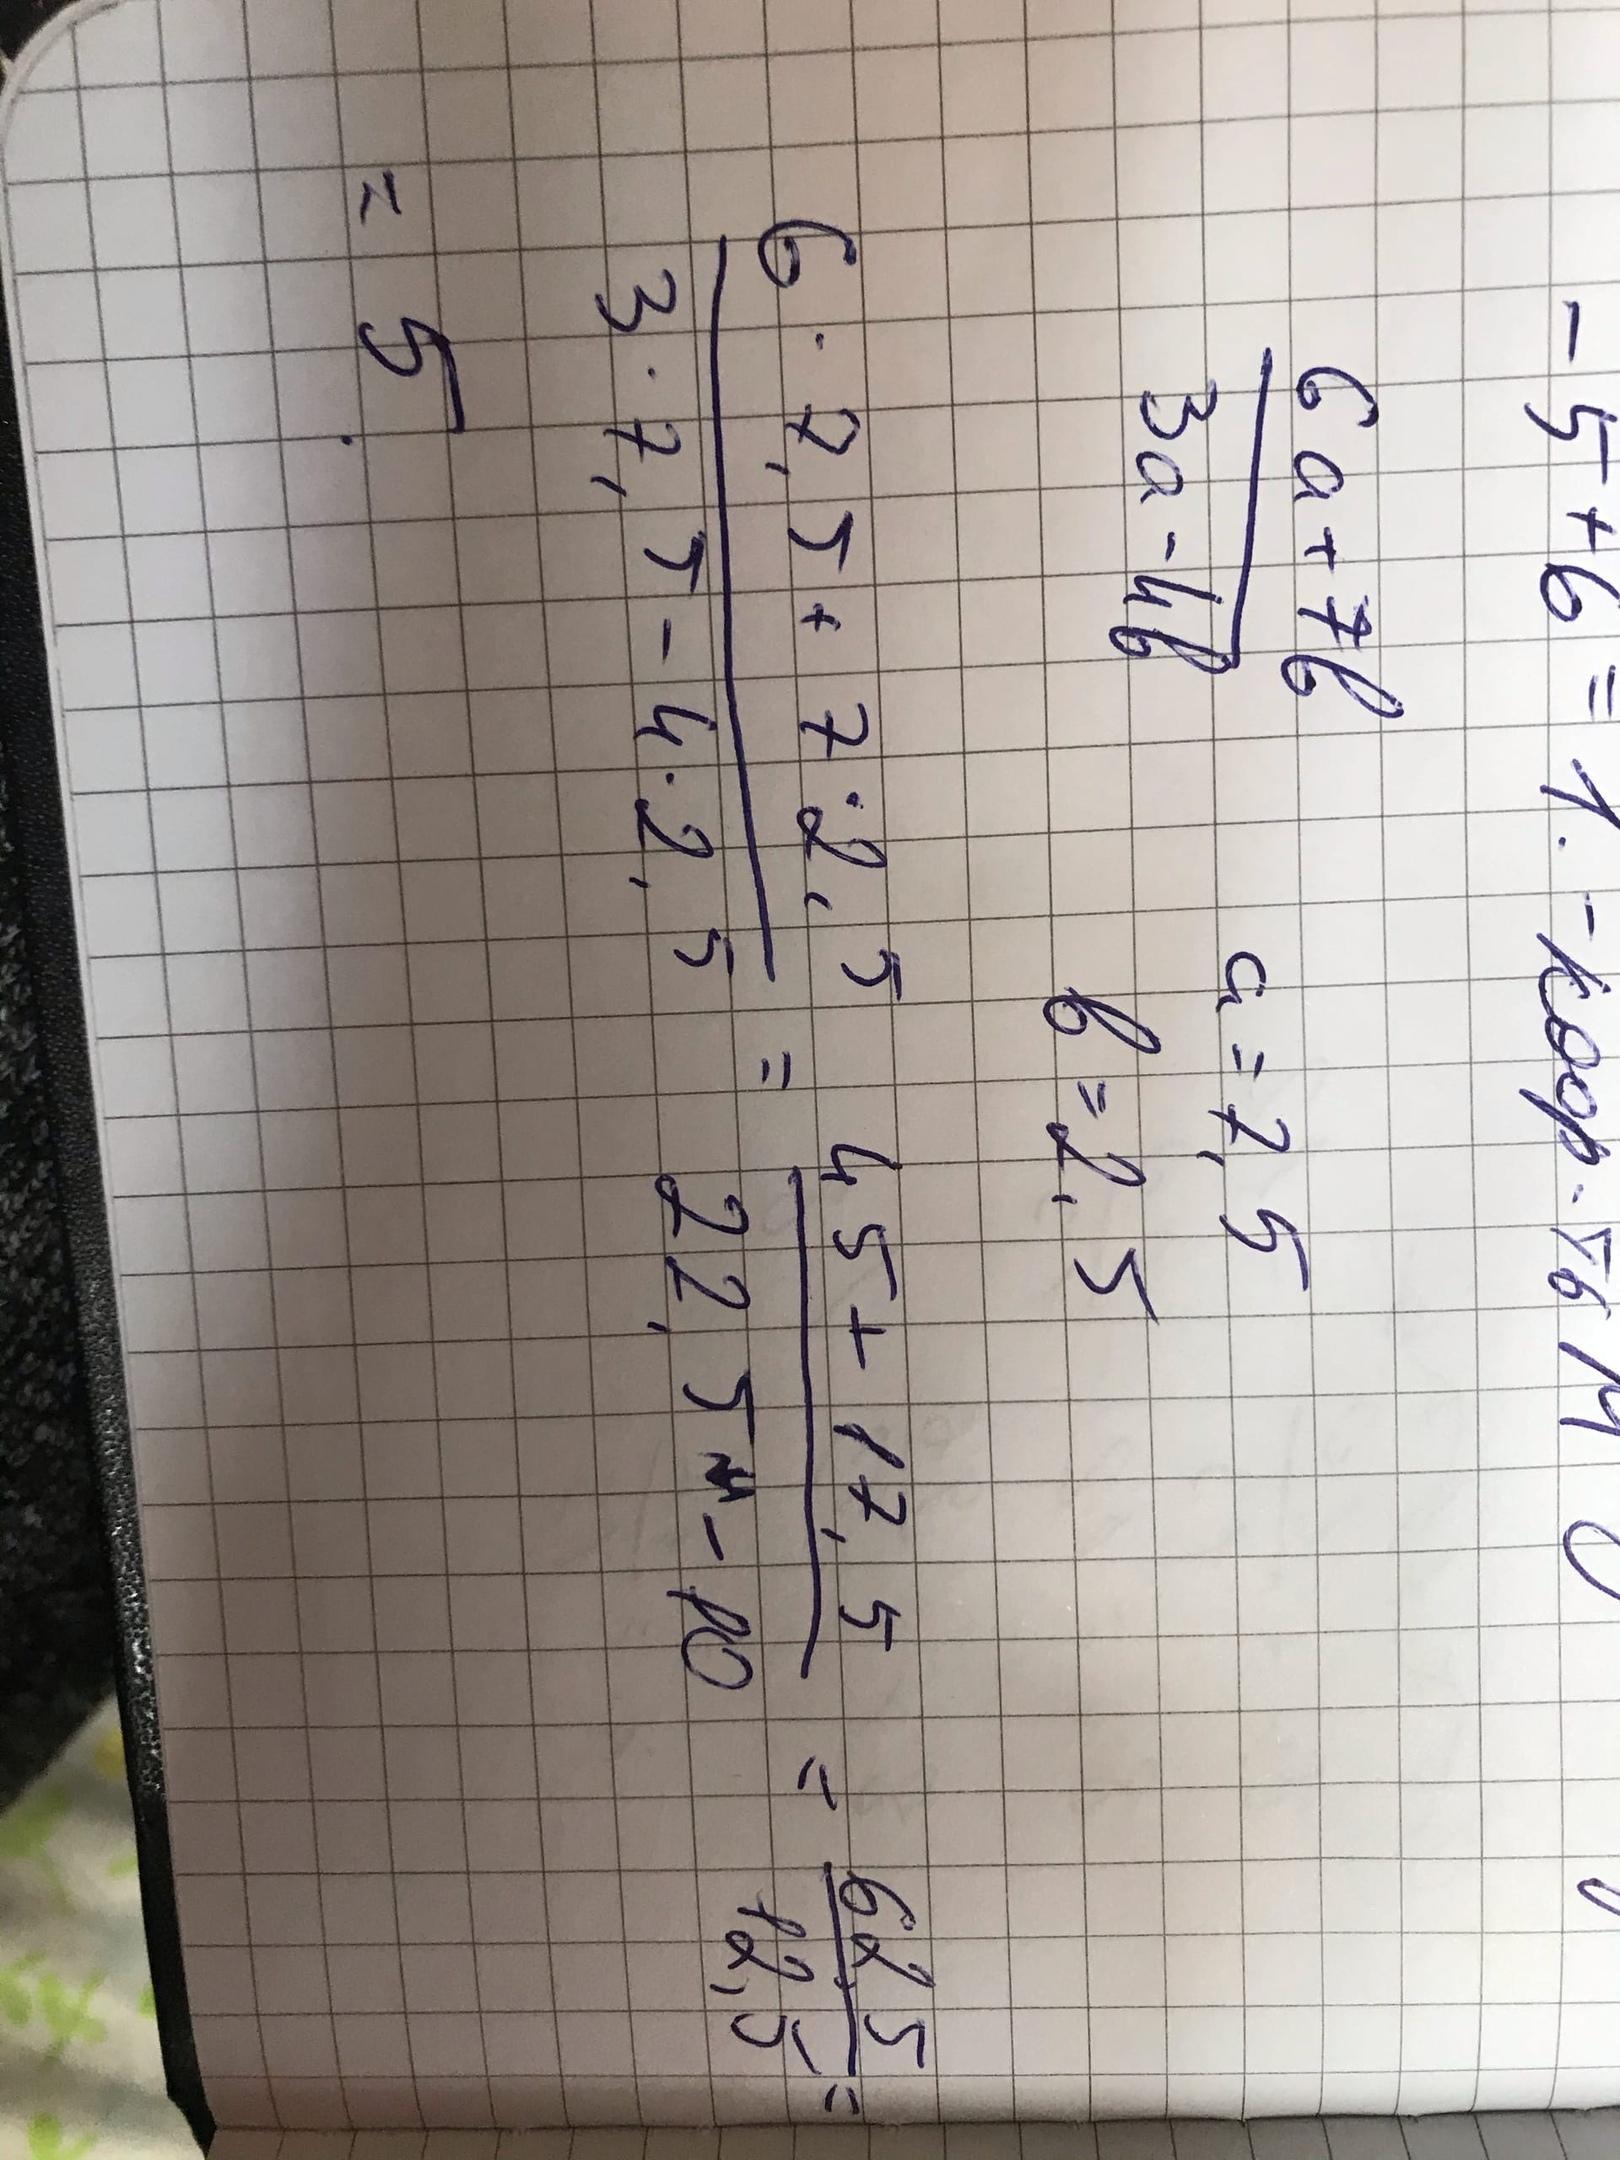 -5+6=1. - коор.
6a+7в
3a-4в
a=7,5
в=2,5
6·7,5+7·2,5
3·7,5-4·2,5
=
45+17,5
22,5 -10
=
62,5
12,5
=
= 5.